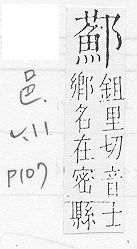 鉏里切音士
鄉名在密縣
邑.
p107